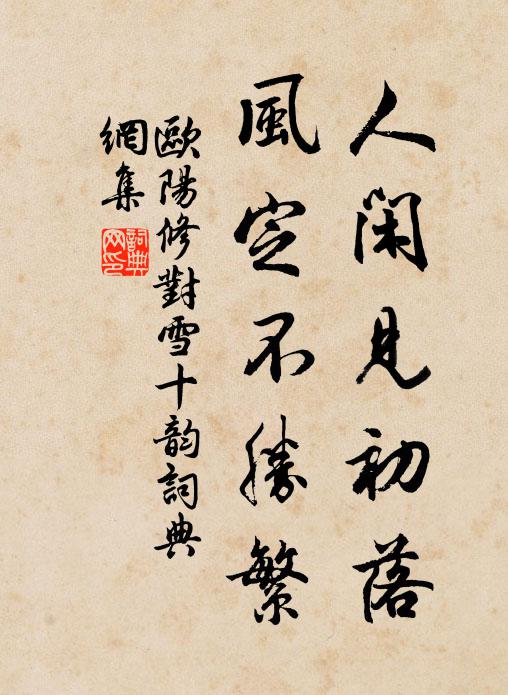 人閑見初落
風定不勝繁
歐陽修對雪十韵詞典
網集
詞典
网印